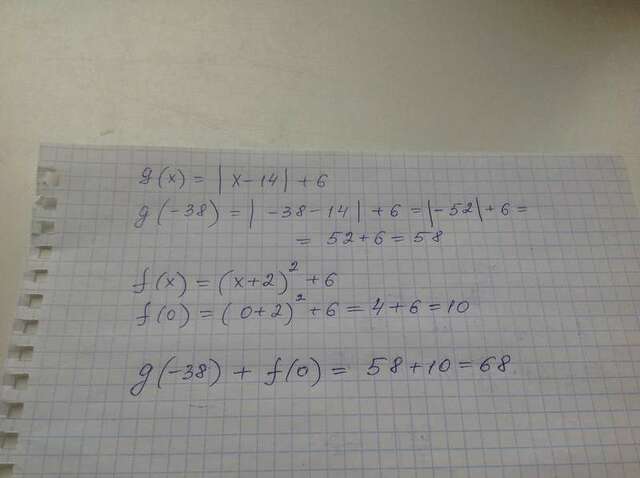 g(x) = |x-14| + 6
g(-38) = |-38-14| + 6 = |-52| + 6 =
= 52+6 = 58
f(x) = (x+2)² + 6
f(0) = (0+2)² + 6 = 4+6 = 10
g(-38) + f(0) = 58+10 = 68